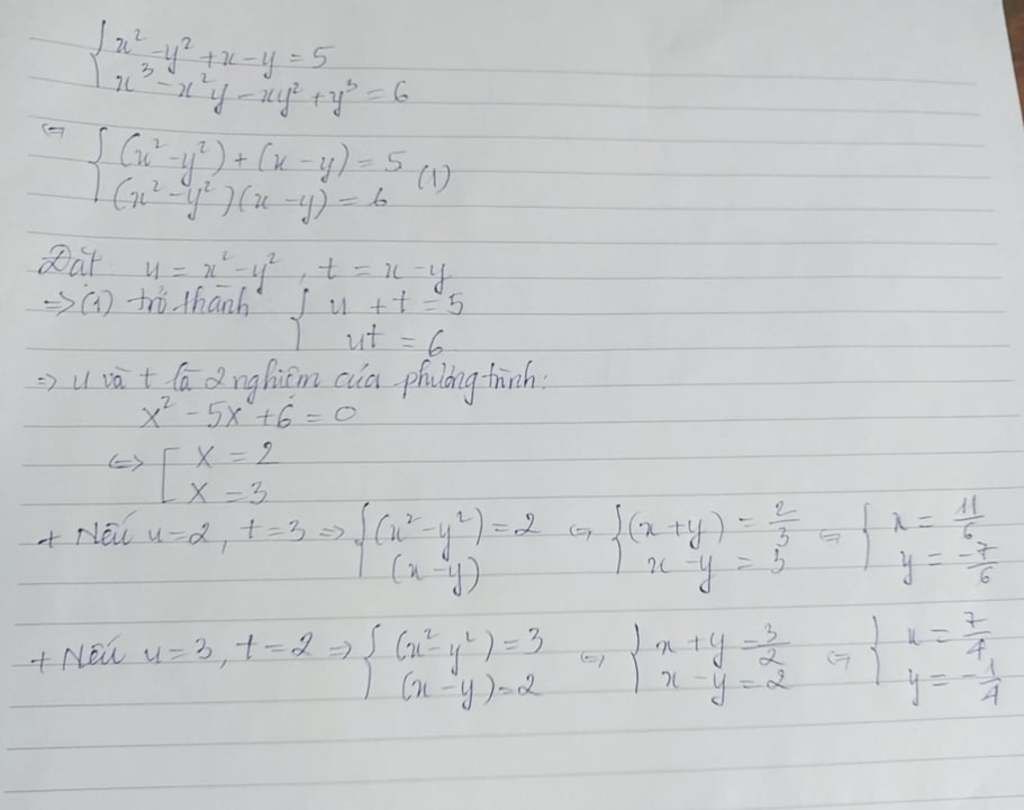 { x² - y² + x - y = 5
x³ - x²y - xy² + y³ = 6
⇔ { (x² - y²) + (x - y) = 5 (1)
(x² - y²)(x - y) = 6
Đặt u = x² - y², t = x - y
=> (1) trở thành { u + t = 5
ut = 6
=> u và t là 2 nghiệm của phương trình:
X² - 5X + 6 = 0
<=> [ X = 2
X = 3
+ Nếu u = 2, t = 3 => { (x² - y²) = 2 ⇔ { (x + y) = 2/3 ⇔ { x = 11/6
(x - y) x - y = 3 y = -7/6
+ Nếu u = 3, t = 2 => { (x² - y²) = 3 ⇔ { x + y = 3/2 ⇔ { x = 7/4
(x - y) = 2 x - y = 2 y = -1/4